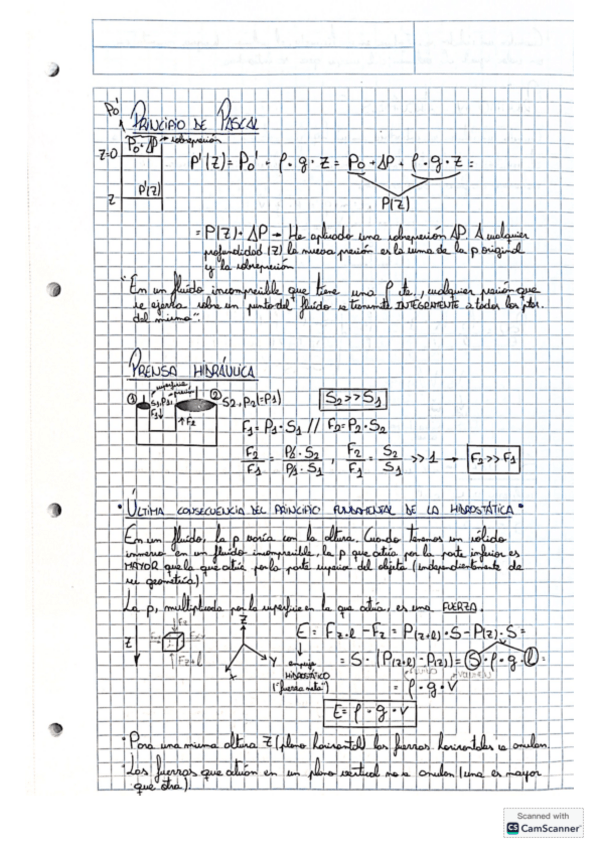 Po'
PRINCIPIO DE PASCAL
Po+ΔP → sobrepresión
z=0
P'(z) = Po' + ρ · g · z = Po + ΔP + ρ · g · z =
P'(z)
z
P(z)
= P(z) + ΔP → He aplicado una sobrepresión ΔP. A cualquier
profundidad (z) la nueva presión es la suma de la p original
y la sobrepresión
"En un fluido incompresible que tiene una ρ cte., cualquier presión que
se ejerza sobre un punto del fluido se transmite INTEGRAMENTE a todos los ptos.
del mismo".
PRENSA HIDRÁULICA
superficie
presión
① S1, P1 ② S2, P2(=P1)
S2 >> S1
F1 ↓ ↑ F2
F1 = P1 · S1 // F2 = P2 · S2
F2/F1 = P2 · S2 / P1 · S1 , F2/F1 = S2/S1 >> 1 → F2 >> F1
• ÚLTIMA CONSECUENCIA DEL PRINCIPIO FUNDAMENTAL DE LA HIDROSTÁTICA •
En un fluido, la p varía con la altura. Cuando tenemos un sólido
inmerso en un fluido incompresible, la p que actúa por la parte inferior es
MAYOR que la que actúa por la parte superior del objeto (independientemente de
su geometría).
La p, multiplicada por la superficie en la que actúa, es una FUERZA.
z Fz Fx Fz+l
Z Y X
E = Fz+l - Fz = P(z+l) · S - P(z) · S =
empuje
HIDROSTÁTICO
("fuerza neta")
= S · (P(z+l) - P(z)) = S · ρ · g · l =
= ρ · g · V
E = ρ · g · V
• Para una misma altura z (plano horizontal) las fuerzas horizontales se anulan.
• Las fuerzas que actúan en un plano vertical no se anulan (una es mayor
que otra).
Scanned with
CS CamScanner